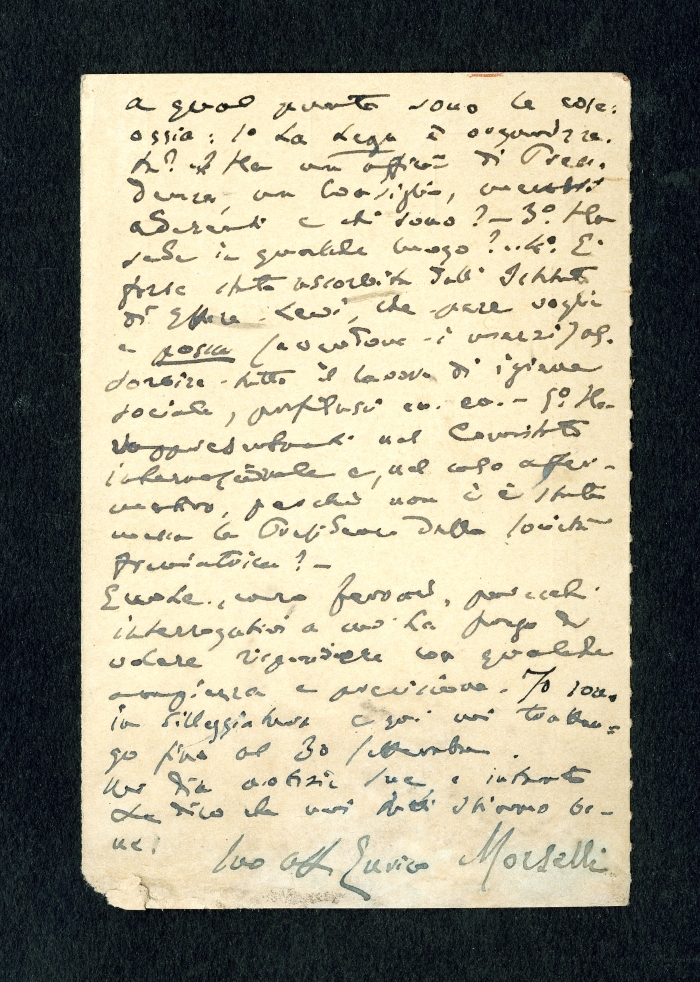 a qual punto sono le cose:
ossia: 1o La Lega è organizza-
ta? 2o Ha un ufficio di Presi-
denza, un Consiglio, membri
aderenti e chi sono? – 3o. Ha
sede in qualche luogo? .. 4o. E'
forse stata assorbita dall' Istituto
di Ettore Levi, che pare voglia
e possa (a cui dove i mezzi) as-
sorbire tutto il lavoro di igiene
sociale, profilassi ec. ec. – 5o. Ha
rappresentanti nel Comitato
internazionale e, nel caso affer-
mativo, perchè non ci è stata
messa la Presidenza della Società
freniatrica? –
Eccole, caro Ferrari, parecchi
interrogativi a cui La prego di
volere rispondere con qualche
ampiezza e precisione. Io sono
in villeggiatura e qui mi tratten-
go fino al 30 settembre.
Mi dia notizie sue e intanto
Le dico che noi tutti stiamo be-
ne!
Suo aff Enrico Morselli